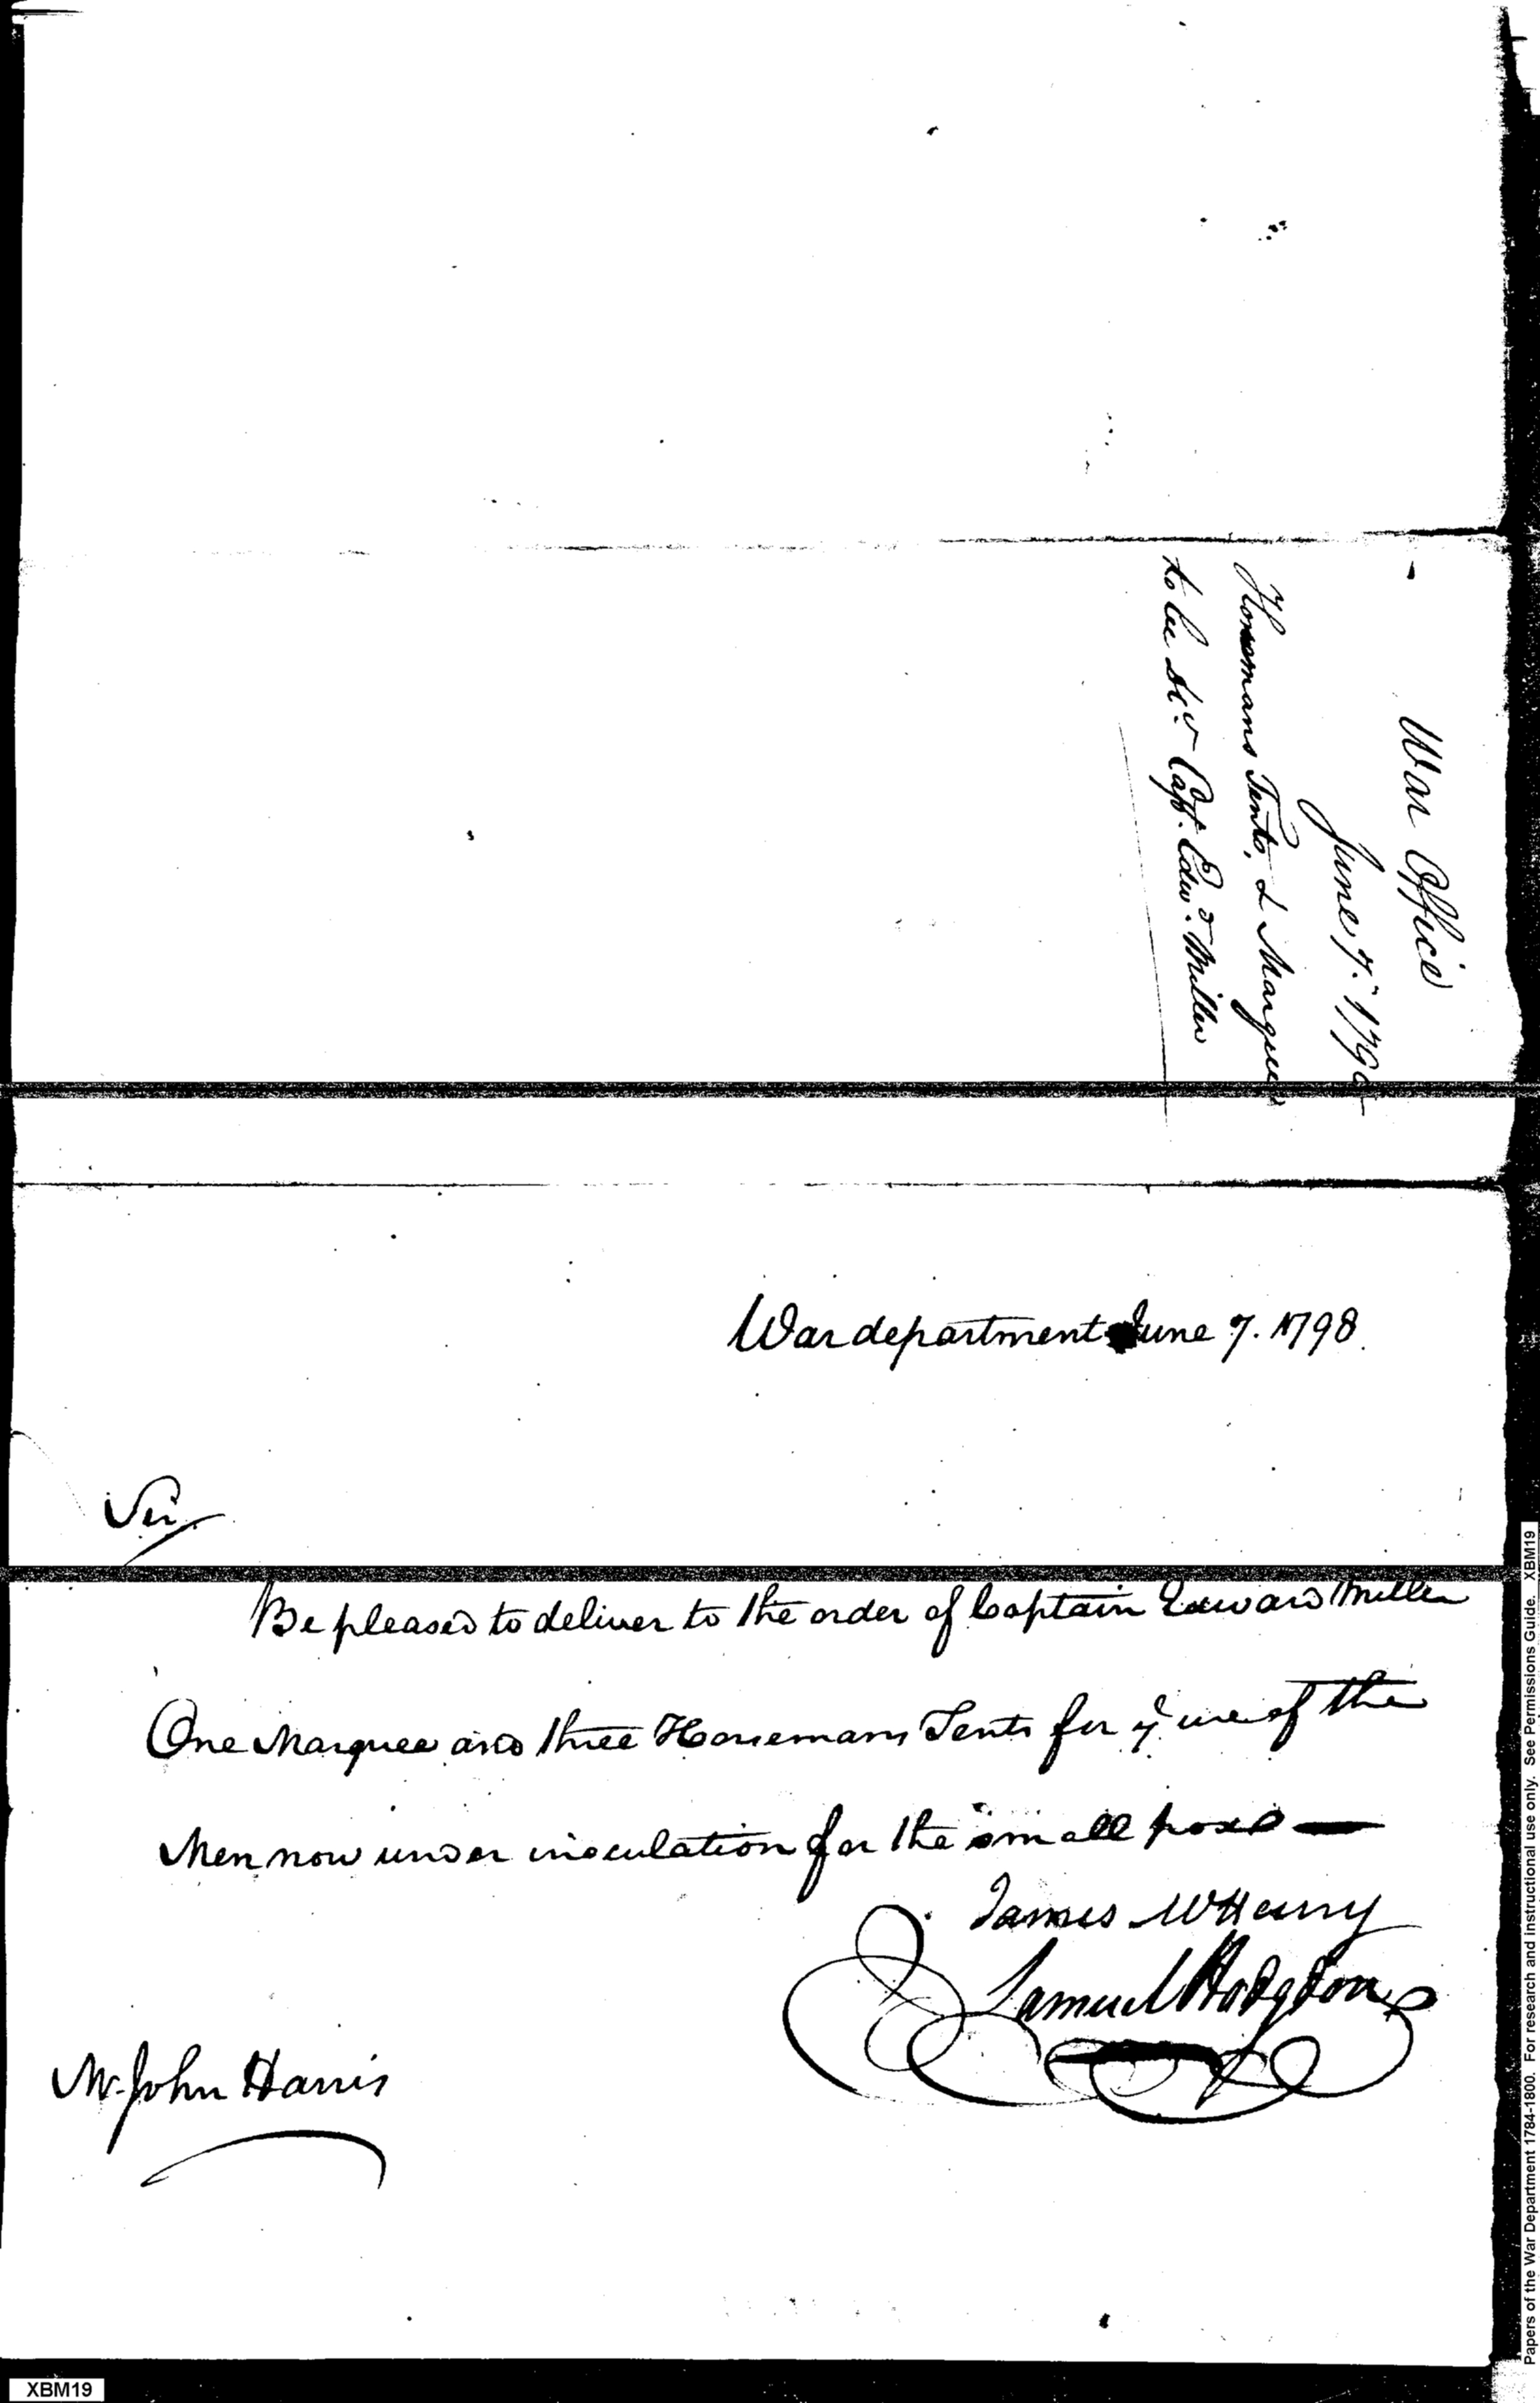 War Office
June 7. 179
Horsemans Tents, & Marquee
to be Capt. Edwd. Miller
War department June 7. 1798.
Sir
Be pleased to deliver to the order of Captain Edward Miller
One Marquee and three Horsemans Tents for ye use of the
Men now under inoculation for the small poxe —
James McHenry
Samuel Hodgdon
Mr. John Harris
Papers of the War Department 1784-1800. For research and instructional use only. See Permissions Guide. XBM19
XBM19